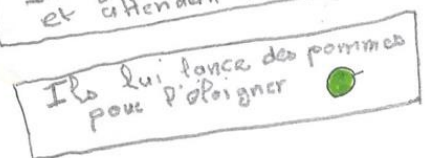 et attendu
Ils lui lance des pommes
pour l'éloigner